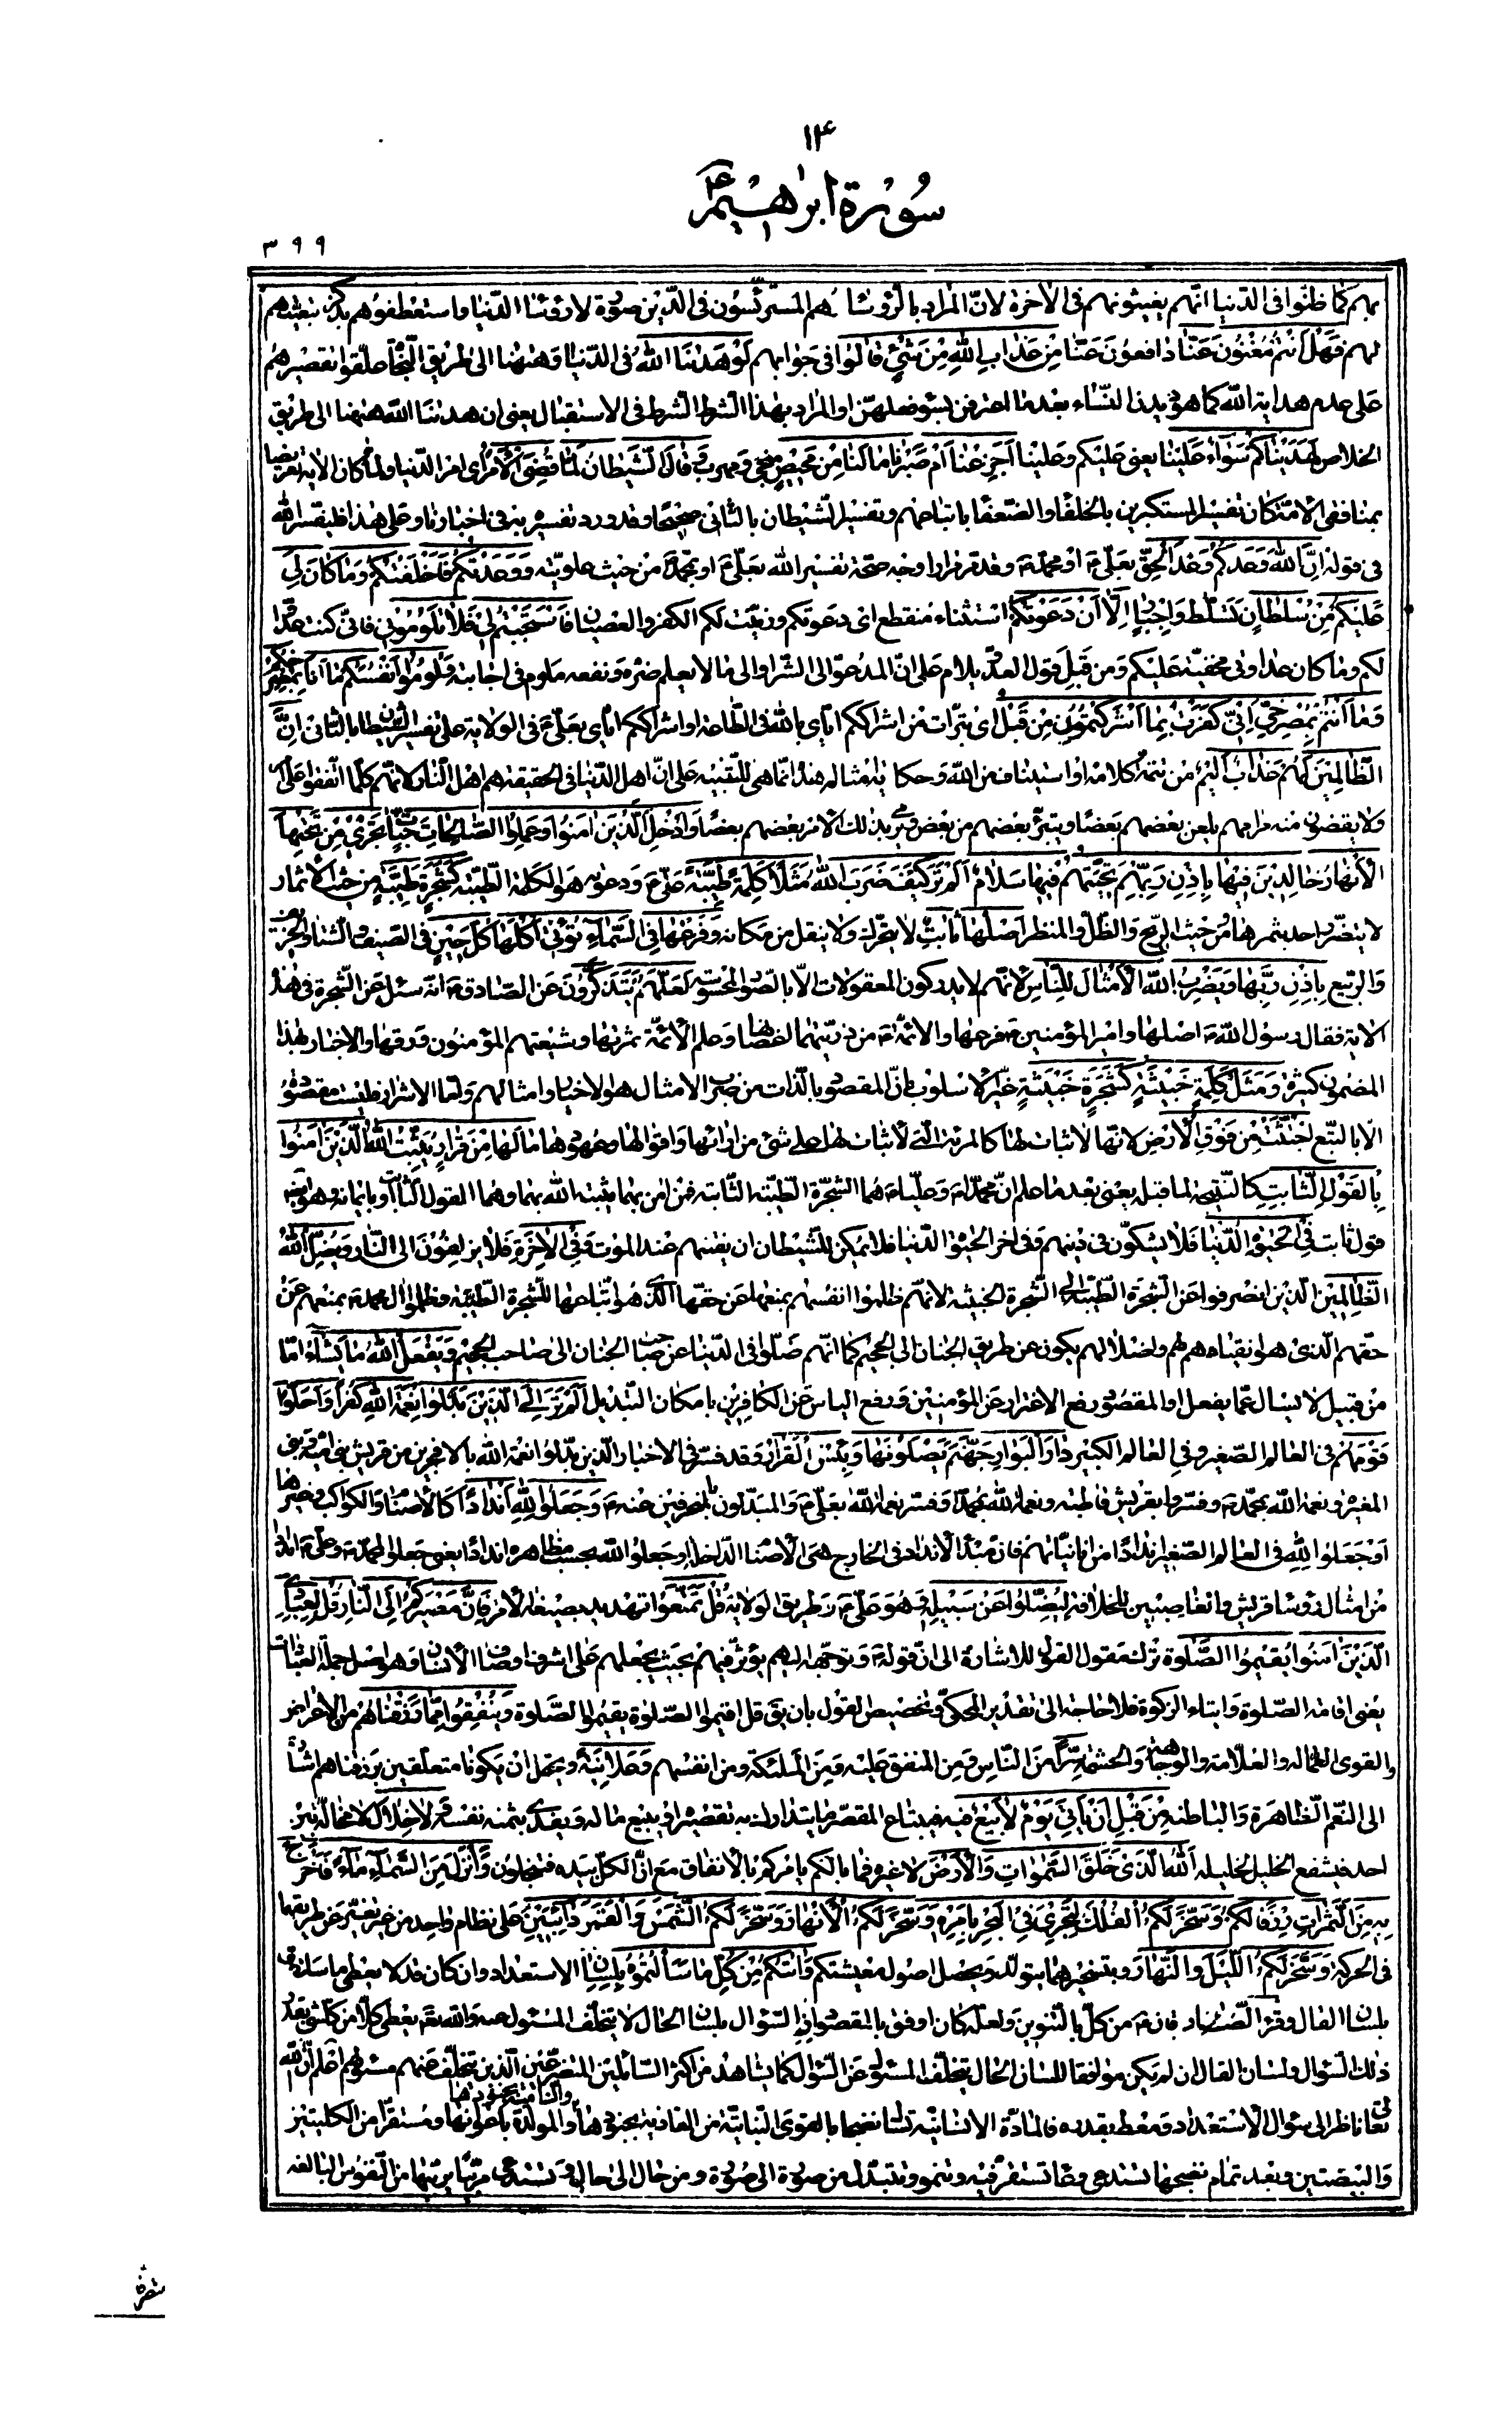 ١٤
سورة ابراهيم
٣٩٩
بهم كما ظنوا فى الدنيا انهم يغيثونهم فى الاخرة لان المراد بالرؤساء هم المترئسون فى الدين صورة لا رؤساء الدنيا واستعطفوهم بذكر تبعيتهم
لهم فَهَلْ اَنْتُمْ مُغْنُونَ عَنّا دافعون عنا مِنْ عَذابِ اللهِ مِنْ شَيْءٍ قالُوا فى جوابهم لَوْ هَدينَا اللهُ فى الدنيا او هيهنا الى طريق النجاة علقوا تقصيرهم
على عدم هداية الله كما هو ديدن النساء بعد ما اعترفن بسوء فعلهن او المراد بهذا الشرط الشرط فى الاستقبال يعنى ان هدينا الله هيهنا الى طريق
الخلاص لَهَدَيْناكُمْ سَواءٌ عَلَيْنا يعنى عليكم وعلينا اَجَزِعْنا اَمْ صَبَرْنا ما لَنا مِنْ مَحيصٍ منجى ومهرب وَقالَ الشَّيْطانُ لَمّا قُضِىَ الْاَمْرُ اى امر الدنيا ولما كان الاية تعريضا
بمنافقى الامة كان تفسير المستكبرين بالخلفاء والضعفاء باتباعهم وتفسير الشيطان بالثانى صحيحا وقد ورد تفسيره به فى اخبارنا وعلى هذا فليفسر الله
فى قوله اِنَّ اللهَ وَعَدَكُمْ وَعْدَ الْحَقِّ بعلى او محمد وقد مر مرارا وجه صحة تفسير الله بعلى او بمحمد من حيث علويته وَوَعَدْتُكُمْ فَاَخْلَفْتُكُمْ وَما كانَ لِىَ
عَلَيْكُمْ مِنْ سُلْطانٍ تسلط واجبار اِلّا اَنْ دَعَوْتُكُمْ استثناء منقطع اى دعوتكم وزينت لكم الكفر والعصيان فَاسْتَجَبْتُمْ لى فَلا تَلُومُونى فانى كنت عدوا
لكم وما كان عداوتى مخفية عليكم ومن قبل قول العدو يلام على ان المدعو الى الشر او الى ما لا يعلم ضره ونفعه ملوم فى اجابته وَلُومُوا اَنْفُسَكُمْ ما اَنَا بِمُصْرِخِكُمْ
وَما اَنْتُمْ بِمُصْرِخِىَّ اِنّى كَفَرْتُ بِما اَشْرَكْتُمُونِ مِنْ قَبْلُ اى تبرأت من اشراككم اياى بالله فى الطاعة او اشراككم اياى بعلى فى الولاية على تفسير الشيطان بالثانى اِنَّ
الظّالِمينَ لَهُمْ عَذابٌ اَليمٌ من تتمة كلامه او استيناف من الله وحكاية امثال هذا انما هى للتنبيه على ان اهل الدنيا فى الحقيقة هم اهل النار لانهم كلما اتفقوا على امر
ولا يقضون منه مرامهم يلعن بعضهم بعضا ويتبرء بعضهم من بعض ويرمى بذلك الامر بعضهم بعضا وَاُدْخِلَ الَّذينَ امَنُوا وَعَمِلُوا الصّالِحاتِ جَنّاتٍ تَجْرى مِنْ تَحْتِهَا
الْاَنْهارُ خالِدينَ فيها بِاِذْنِ رَبِّهِمْ تَحِيَّتُهُمْ فيها سَلامٌ اَلَمْ تَرَ كَيْفَ ضَرَبَ اللهُ مَثَلًا كَلِمَةً طَيِّبَةً على ودعوته هو الكلمة الطيبة كَشَجَرَةٍ طَيِّبَةٍ من حيث الاثمار
لا يتضرر احد بثمرها ومن حيث الريح والظل والمنظر اَصْلُها ثابِتٌ لا يتحرك ولا ينقل من مكانه وَفَرْعُها فِى السَّماءِ تُؤْتى اُكُلَها كُلَّ حينٍ فى الصيف والشتاء والخريف
والربيع بِاِذْنِ رَبِّها وَيَضْرِبُ اللهُ الْاَمْثالَ لِلنّاسِ لانهم لا يدركون المعقولات الا بالصور المحسوسة لَعَلَّهُمْ يَتَذَكَّرُونَ عن الصادق انه سئل عن الشجرة فى هذه
الاية فقال رسول الله اصلها وامير المؤمنين فرعها والائمة من ذريتهما اغصانها وعلم الائمة ثمرتها وشيعتهم المؤمنون ورقها والاخبار بهذا
المضمون كثيرة وَمَثَلُ كَلِمَةٍ خَبيثَةٍ كَشَجَرَةٍ خَبيثَةٍ غير الاسلوب فان المقصود بالذات من ضرب الامثال هو الاخيار وامثالهم واما الاشرار فليست مقصودة
الا بالتبع اجْتُثَّتْ مِنْ فَوْقِ الْاَرْضِ لانها لا ثبات لها كالمرئة التى لا ثبات لها على شئ من ارائها واقوالها وعهودها ما لَها مِنْ قَرارٍ يُثَبِّتُ اللهُ الَّذينَ امَنُوا
بِالْقَوْلِ الثّابِتِ كالنتيجة لما قبله يعنى بعد ما علم ان محمدا وعليا هما الشجرة الطيبة الثابتة فمن امن بهما يثبته الله بهما وهما القول الثابت او بايمانه وهو ايضا
قول ثابت فِى الْحَيوةِ الدُّنْيا فلا يشكون فى دينهم وفى اخر الحيوة الدنيا فلا يمكن للشيطان ان يفتنهم عند الموت وَفِى الْاخِرَةِ فلا يزلقون الى النار وَيُضِلُّ اللهُ
الظّالِمينَ الذين انصرفوا عن الشجرة الطيبة الى الشجرة الخبيثة لانهم ظلموا انفسهم بمنعها عن حقها الذى هو اتباعها للشجرة الطيبة وظلموا ال محمد بمنعهم عن
حقهم الذى هو انقيادهم لهم واضلالهم يكون عن طريق الجنان الى الجحيم كما انهم ضلوا فى الدنيا عن صاحب الجنان الى صاحب الجحيم وَيَفْعَلُ اللهُ ما يَشاءُ اما
من قبيل لا يسأل عما يفعل او المقصود رفع الاغترار عن المؤمنين ورفع اليأس عن الكافرين بامكان التبديل اَلَمْ تَرَ اِلَى الَّذينَ بَدَّلُوا نِعْمَةَ اللهِ كُفْرًا وَاَحَلُّوا
قَوْمَهُمْ فى العالم الصغير وفى العالم الكبير دارَ الْبَوارِ جَهَنَّمَ يَصْلَوْنَها وَبِئْسَ الْقَرارُ وقد فسر فى الاخبار الذين بدلوا نعمة الله بالافجرين من قريش بنى امية وبنى
المغيرة ونعمة الله بمحمد وفسروا بقريش قاطبة ونعمة الله بمحمد وفسر نعمة الله بعلى والمبدلون بالمنحرفين عنه وَجَعَلُوا لِلّهِ اَنْدادًا كالاصنام والكواكب وغيرها
او جعلوا لله فى العالم الصغير اندادا من انانياتهم فان مبدأ الانداد فى الخارج هى الاصنام الداخلة او جعلوا لله بحسب مظاهره اندادا يعنى جعلوا لمحمد وعلى اندادا
من امثال رؤساء قريش والغاصبين للخلافة لِيُضِلُّوا عَنْ سَبيلِه وهو على وطريق الولاية قُلْ تَمَتَّعُوا تهديد بصيغة الامر فَاِنَّ مَصيرَكُمْ اِلَى النّارِ قُلْ لِعِبادِىَ
الَّذينَ امَنُوا يُقيمُوا الصَّلوةَ ترك مقول القول للاشارة الى ان قوله وتوجهه اليهم يؤثر فيهم بحيث يجعلهم على اشرف اوصاف الانسان وهو اصل جملة العبادات
يعنى اقامة الصلوة وايتاء الزكوة فلا حاجة الى تقدير المحكى وتخصيص القول بان يق قل اقيموا الصلوة يقيموا الصلوة وَيُنْفِقُوا مِمّا رَزَقْناهُمْ من الاعراض
والقوى العمالة والعلامة والوجاهة والحشمة سِرًّا من الناس ومن المنفق عليه ومن الملئكة ومن انفسهم وَعَلانِيَةً ويحتمل ان يكونا متعلقين برزقناهم اشارة
الى النعم الظاهرة والباطنة مِنْ قَبْلِ اَنْ يَأْتِىَ يَوْمٌ لا بَيْعٌ فيهِ فيبتاع المقصر ما يتدارك به تقصيره او يبيع ماله ويفدى بثمنه نفسه وَلا خِلالٌ لا مخالة بين
احد فيشفع الخليل لخليله اَللهُ الَّذى خَلَقَ السَّمواتِ وَالْاَرْضَ لا غيره فما بالكم يأمركم بالانفاق مع ان الكل بيده فتبخلون وَاَنْزَلَ مِنَ السَّماءِ ماءً فَاَخْرَجَ
بِه مِنَ الثَّمَراتِ رِزْقًا لَكُمْ وَسَخَّرَ لَكُمُ الْفُلْكَ لِتَجْرِىَ فِى الْبَحْرِ بِاَمْرِه وَسَخَّرَ لَكُمُ الْاَنْهارَ وَسَخَّرَ لَكُمُ الشَّمْسَ وَالْقَمَرَ دائِبَيْنِ على نظام واحد من غير تغير عن طريقهما
فى الحركة وَسَخَّرَ لَكُمُ اللَّيْلَ وَالنَّهارَ وبتسخيرهما يتولد ويحصل اصول معيشتكم وَاتيكُمْ مِنْ كُلِّ ما سَأَلْتُمُوهُ بلسان الاستعداد وان كان قد لا يعطى ما سألوه
بلسان القال وقرأ الصادق من كل بالتنوين ولعله كان اوفق بالمقصود فان السؤال بلسان الحال لا يتخلف المسئول عنه والله تعالى يعطى كلا من كل شئ بقدر
ذلك السؤال ولسان القال ان لم يكن موافقا للسان الحال يتخلف المسئول عن السؤال كما يشاهد من اكثر السائلين المتضرعين الذين يتخلف عنهم مسئولهم اعلم ان الله
تعالى ناظر الى سؤال الاستعداد ومعط بقدره فالمادة الانسانية تسأل نضجها بالقوى النباتية من الغاذية بجنودها والنامية بجنودها والمولدة باعوانها ومستقرا من الكليتين
والبيضتين وبعد تمام نضجها تستدعى وعاء تستقر فيه وتنمو وتتبدل من صورة الى صورة ومن حال الى حال وتستدعى مربيا يربيها من النفوس البالغة